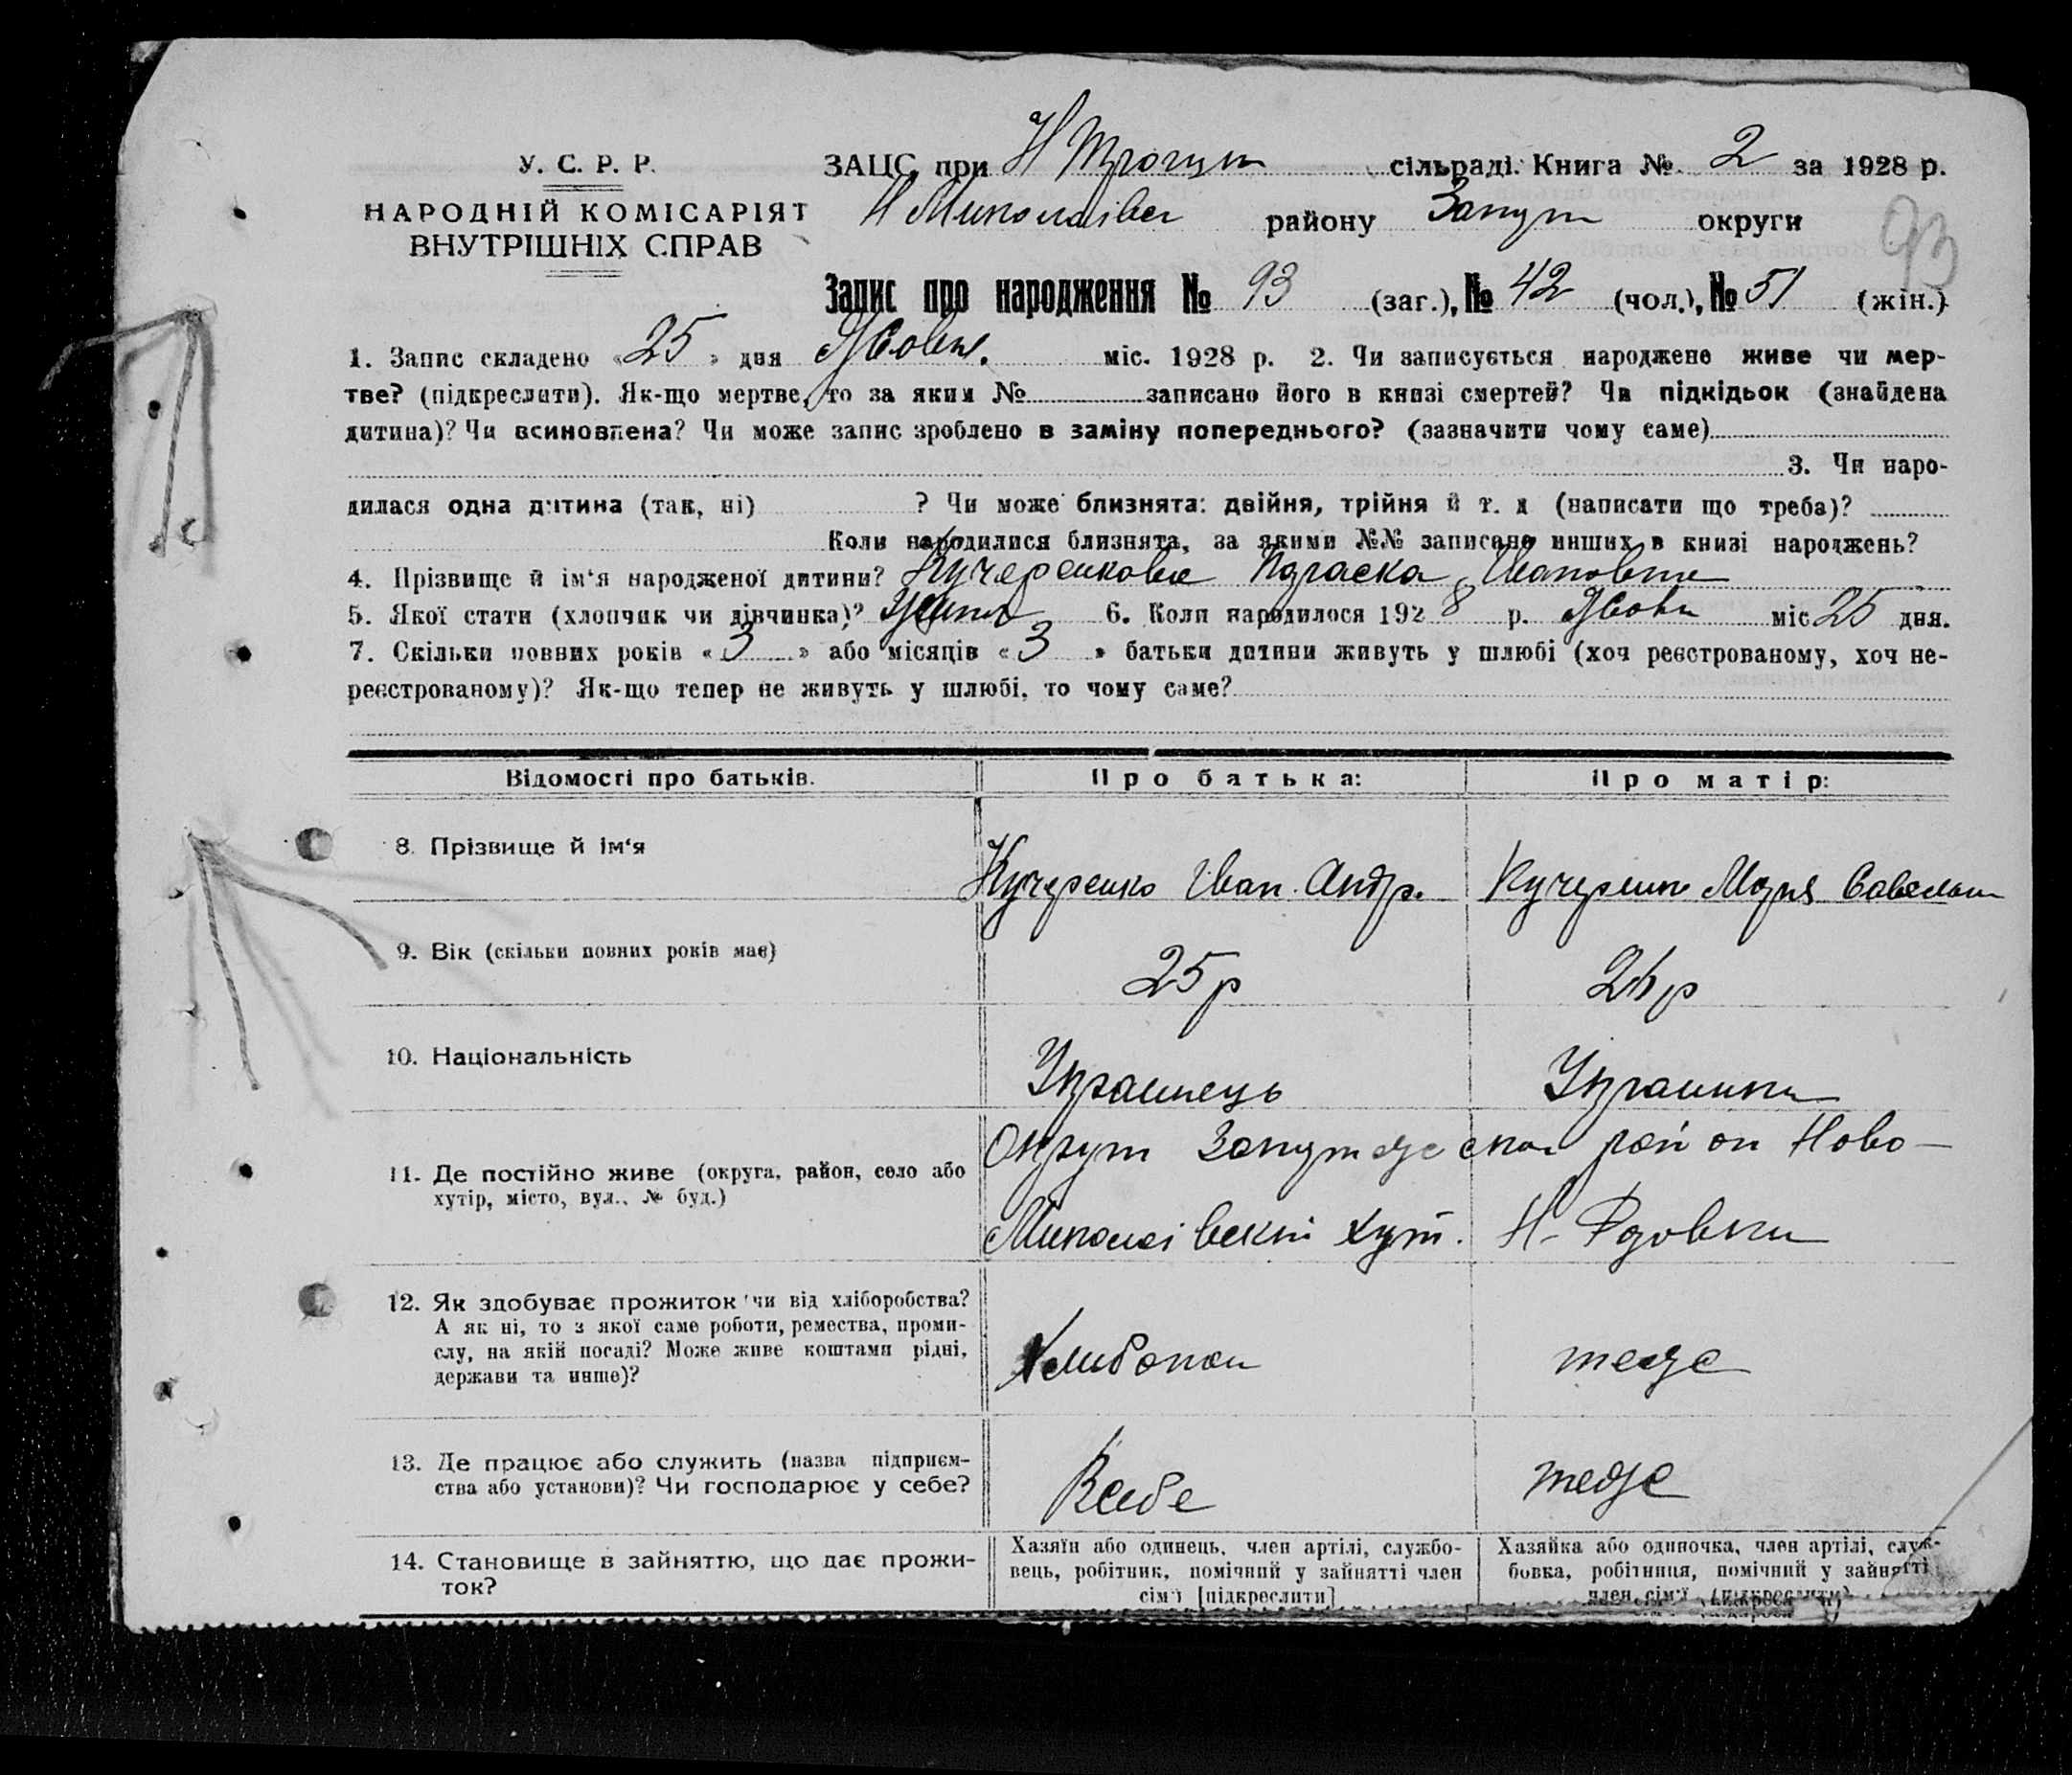 У. С. Р. Р.
НАРОДНІЙ КОМІСАРІЯТ
ВНУТРІШНІХ СПРАВ
ЗАЦС при Н сільраді. Книга № 2 за 1928 р.
Н Миколаївсь району Запор округи
93
Запис про народження № 93 (заг.), № 42 (чол.), № 51 (жін.)
1. Запис складено «25» дня Жовтн. міс. 1928 р. 2. Чи записується народжене живе чи мер-
тве? (підкреслити). Як-що мертве, то за яким № записано його в книзі смертей? Чи підкідьок (знайдена
дитина)? Чи всиновлена? Чи може запис зроблено в заміну попереднього? (зазначити чому саме)
3. Чи наро-
дилася одна дитина (так, ні) ? Чи може близнята: двійня, трійня й т. д (написати що треба)?
Коли народилися близнята, за якими №№ записано инших в книзі народжень?
4. Прізвище й ім'я народженої дитини? Кучеренкова Параска Івановна
5. Якої стати (хлопчик чи дівчинка)? 6. Коли народилося 1928 р. Жовтн міс 25 дня.
7. Скільки повних років «3» або місяців «3» батьки дитини живуть у шлюбі (хоч реєстрованому, хоч не-
реєстрованому)? Як-що тепер не живуть у шлюбі, то чому саме?
Відомості про батьків.
Про батька:
Про матір:
8. Прізвище й ім'я
Кучеренко Іван Андр.
Кучеренко Марія
9. Вік (скільки повних років має)
25 р
26 р
10. Національність
Українець
Українка
11. Де постійно живе (округа, район, село або
хутір, місто, вул., № буд.)
Округ район Ново-
Миколаівский хут. Н-
12. Як здобуває прожиток чи від хліборобства?
А як ні, то з якої саме роботи, ремества, проми-
слу, на якій посаді? Може живе коштами рідні,
держави та инше)?
теже
13. Де працює або служить (назва підприєм-
ства або установи)? Чи господарює у себе?
В себе
теже
14. Становище в зайняттю, що дає прожи-
ток?
Хазяїн або одинець, член артілі, службо-
вець, робітник, помічний у зайнятті член
сім'ї [підкреслити]
Хазяйка або одиночка, член артілі, служ-
бовка, робітниця, помічний у зайнятті
член сім'ї (підкреслити)